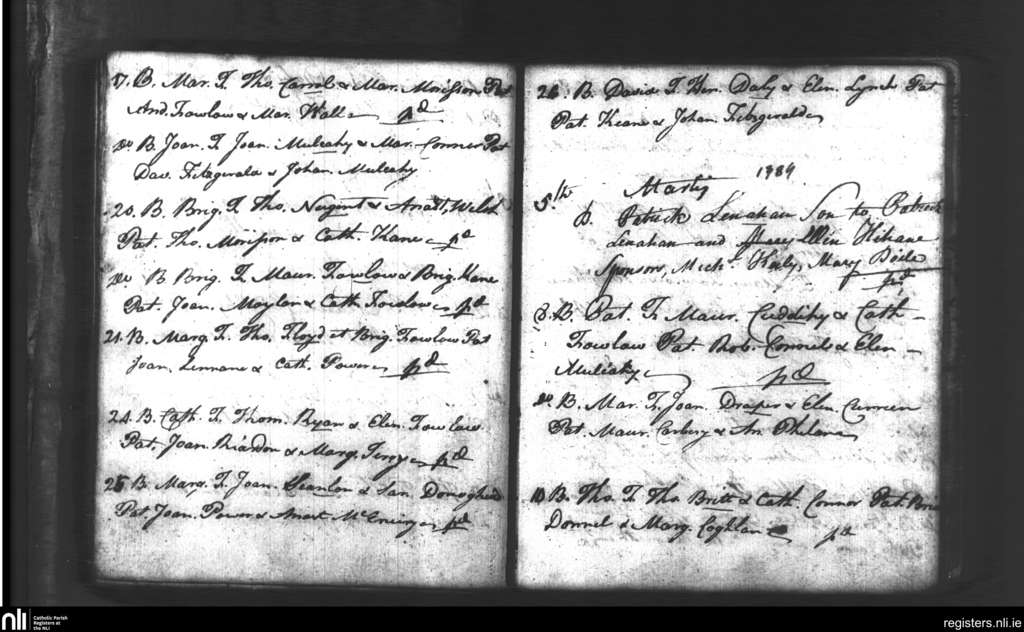 17. B. Mar. F. Tho. Carrol & Mar. Morisson Pat
And. Fowlow & Mar. Wall pd
do B. Joan. F. Joan. Mulcahy & Mar. Connor Pat
Dav. Fitzgerald & Johan. Mulcahy
20. B. Brig. F. Tho. Nugent & Anast. Welsh
Pat. Tho. Morisson & Cath. Kane pd
do B Brig. F. Maur. Fowlow & Brig. Kane
Pat. Joan. Moylan & Cath. Fowlow pd
21. B. Marg. F. Tho. Floyd et Brig. Fowlow Pat
Joan. Linnane & Cath. Power pd
24. B. Cath. F. Thom. Ryan & Elin. Fowlow
Pat. Joan. Riardon & Marg. Terry pd
25 B. Marg. F. Joan. Scanlon & Donoghue
Pat Joan. Power & Anast pd
26. B. David F. Daly & Elin. Lynch Pat
Pat. Keane & Johan. Fitzgerald
Martij 1789
5th
B. Patrick Lenahan Son to Patrick
Lenahan and Ellin
Sponsors, Michl. Healy, Mary Boile
pd
8. B. Pat. F. Maur. Cuddihy & Cath
Fowlow Pat. Rob. Connel & Elin
Mulcahy pd
do B. Mar. F. Joan. Draper & Elin. Curreen
Pat. Maur. Carbery & An. Philan
10 B. Tho. F. Tho Britt & Cath. Connor Pat.
Donnel & Marg. Coghlan pd
nli
Catholic Parish
Registers at
the NLI
registers.nli.ie